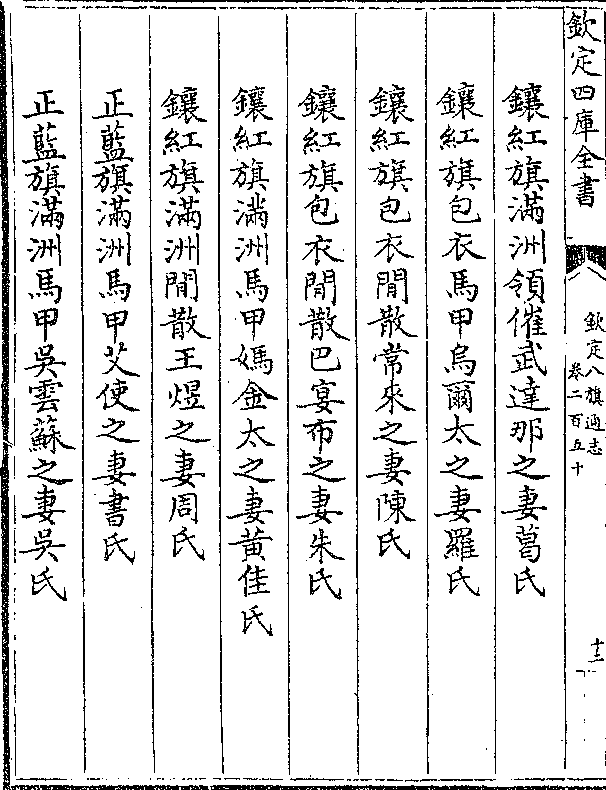 欽定四庫全書
欽定八旗通志
卷二百五十
十二
鑲紅旗滿洲領催武達那之妻葛氏
鑲紅旗包衣馬甲烏爾太之妻羅氏
鑲紅旗包衣閒散常來之妻陳氏
鑲紅旗包衣閒散巴宴布之妻朱氏
鑲紅旗滿洲馬甲媽金太之妻黃佳氏
鑲紅旗滿洲閒散王煜之妻周氏
正藍旗滿洲馬甲艾使之妻書氏
正藍旗滿洲馬甲吳雲蘇之妻吳氏